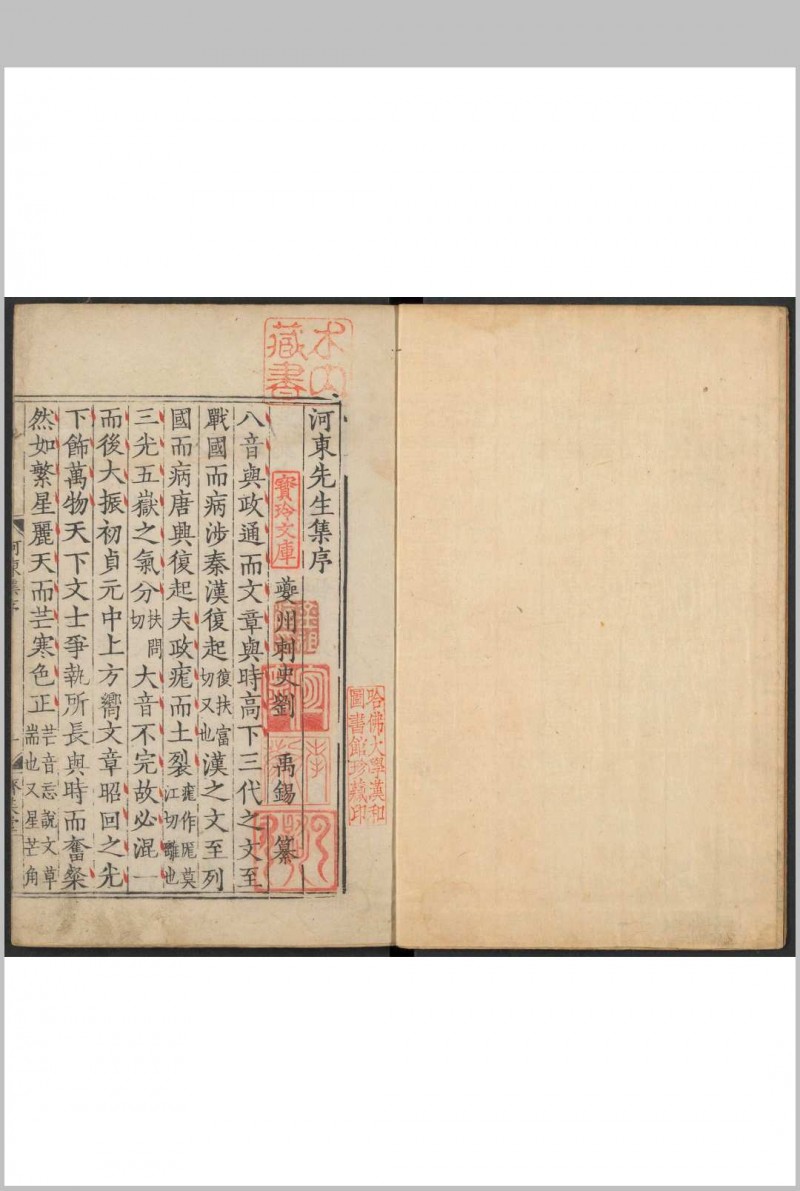 河東先生集序
夔州刺史劉 禹錫 纂
八音與政通而文章與時高下三代之文至
戰國而病涉秦漢復起復扶富切又也漢之文至列
國而病唐興復起夫政痝而土裂痝作厖莫江切離也
三光五嶽之氣分扶問切大音不完故必混一
而後大振初貞元中上方嚮文章昭回之光
下飾萬物天下文士爭執所長與時而奮粲
然如繁星麗天而芒寒色正芒音忘說文草耑也又星芒角
藏書
寶玲文庫
哈佛大學漢和
圖書館珍藏印